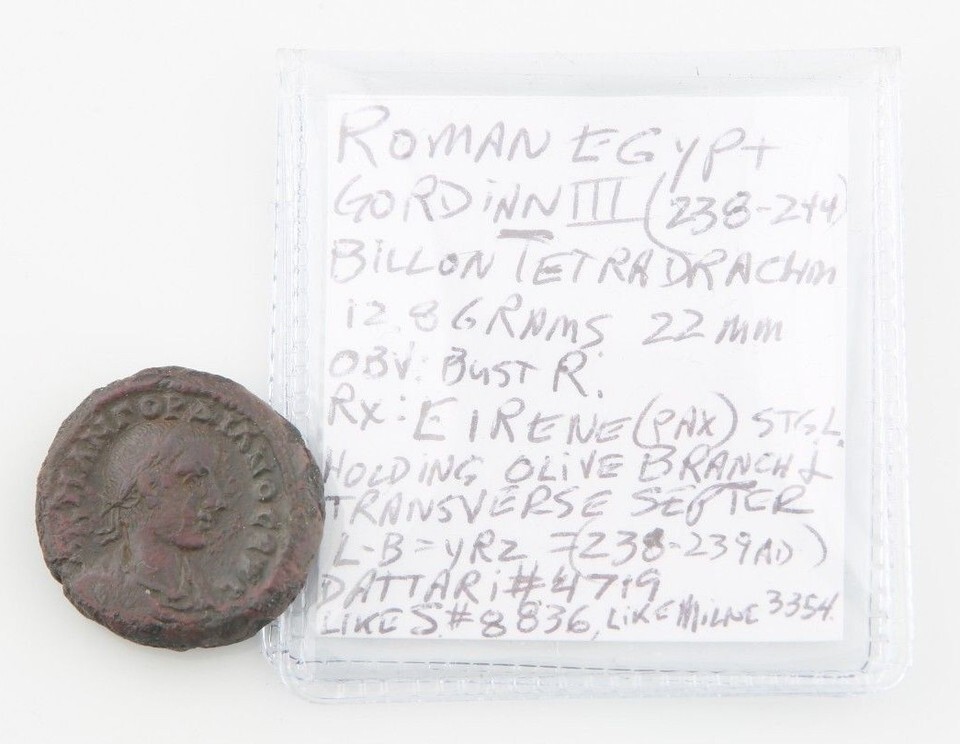 ROMAN EGYPT
GORDiNN III (238-244)
BILLON TETRADRACHM
12.8 GRAMS 22 mm
OBV: BUST R.
RX: EIRENE (PAX) STG L.
HOLDING OLIVE BRANCH &
TRANSVERSE SEPTER
L-B = YR2 = (238-239 AD)
DATTARi #4719
LIKE S. #8836, LIKE MILNE 3354.
ΓΟΡΔΙΑΝΟC